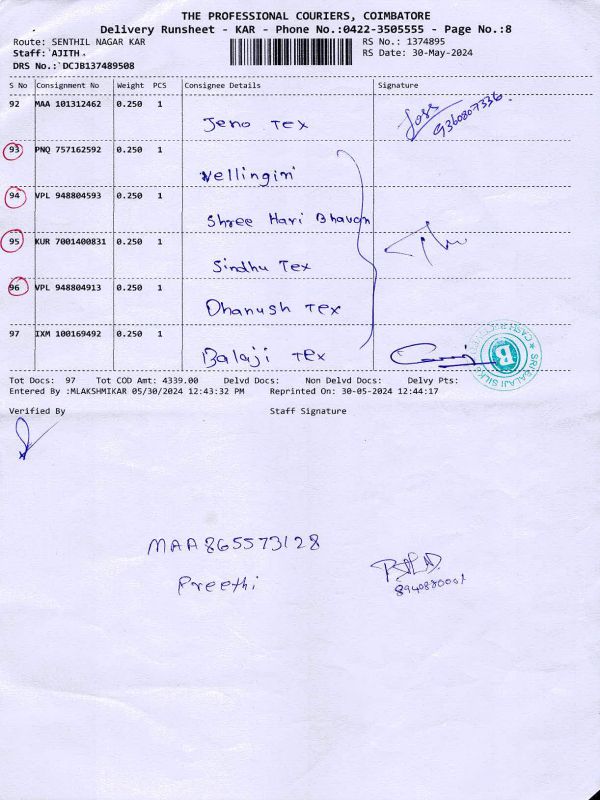 THE PROFESSIONAL COURIERS, COIMBATORE
Delivery Runsheet - KAR - Phone No.:0422-3505555 - Page No.:8
Route: SENTHIL NAGAR KAR
RS No.: 1374895
Staff: AJITH.
RS Date: 30-May-2024
DRS No.: DCJB137489508
S No Consignment No Weight PCS Consignee Details Signature
92 MAA 101312462 0.250 1
Jeno Tex
9360807336.
93 PNQ 757162592 0.250 1
Vellingiri
94 VPL 948804593 0.250 1
Shree Hari Bhavan
95 KUR 7001400831 0.250 1
Sindhu Tex
96 VPL 948804913 0.250 1
Dhanush Tex
97 IXM 100169492 0.250 1
Balaji Tex
SRI BALAJI SILKS
B
Tot Docs: 97 Tot COD Amt: 4339.00 Delvd Docs: Non Delvd Docs: Delvy Pts:
Entered By :MLAKSHMIKAR 05/30/2024 12:43:32 PM Reprinted On: 30-05-2024 12:44:17
Verified By Staff Signature
MAA865573128
Preethi